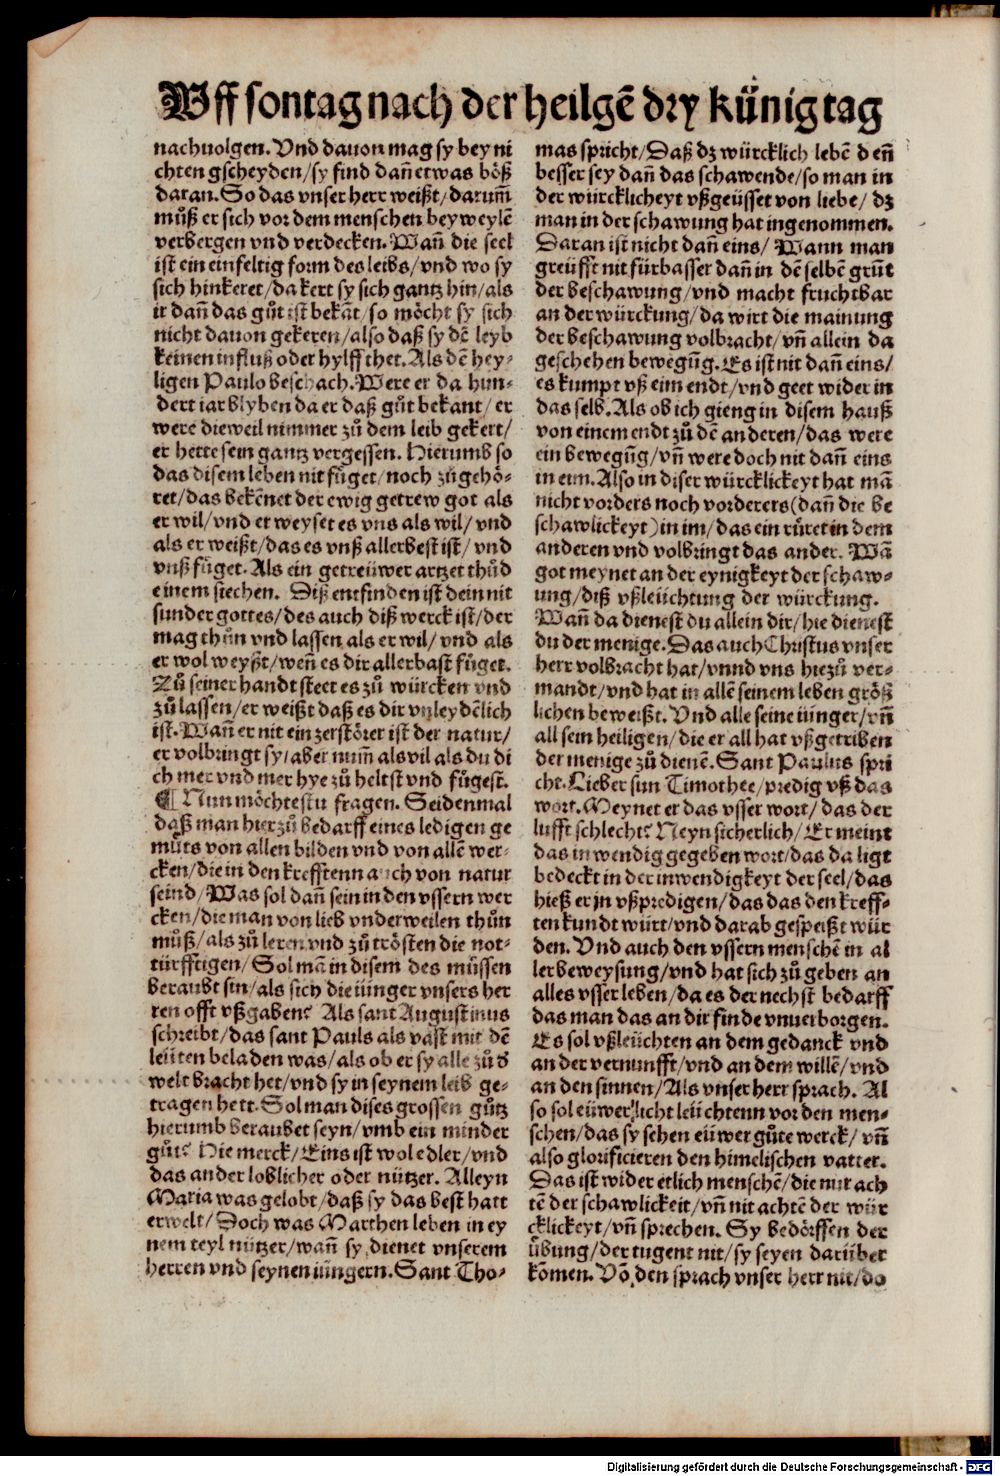 Uff sontag nach der heilgē dry künig tag
nachuolgen. Vnd dauon mag sy bey ni
chten gscheyden/sy find dañ etwas böß
daran. So das vnser herr weißt/darum̄
můß er sich vor dem menschen beyweylē
verbergen vnd verdecken. Wañ die seel
ist ein einfeltig form des leibs/vnd wo sy
sich hinkeret/da kert sy sich gantz hin/als
ir dañ das gůt ist bekāt/so möcht sy sich
nicht dauon gekeren/also daß sy dē leyb
keinen influß oder hylff thet. Als dē hey-
ligen Paulo beschach. Were er da hun-
dert iar blyben da er daß gůt bekant/er
were dieweil nimmer zů dem leib gekert/
er hette sein gantz vergessen. Hierumb so
das disem leben nit fůget/noch zůgehö-
ret/das bekēnet der ewig getrew got als
er wil/vnd er weyset es vns als wil/vnd
als er weißt/das es vnß allerbest ist/vnd
vnß fůget. Als ein getreüwer artzet thůd
einem siechen. Diß entfinden ist dein nit
sunder gottes/des auch diß werck ist/der
mag thůn vnd lassen als er wil/vnd als
er wol weyßt/weñ es dir allerbast fůget.
Zů seiner handt steet es zů würcken vnd
zů lassen/er weißt daß es dir vnleydēlich
ist. Wañ er nit ein zerstörer ist der natur/
er volbringt sy/aber num̄ alsvil als du di
ch mer vnd mer hye zů heltst vnd fůgest.
¶ Nun möchtestu fragen. Seidenmal
daß man hierzů bedarff eines ledigen ge
můts von allen bilden vnd von allē wer-
cken/die in den krefftenn auch von natur
seind/Was sol dañ sein in den vssern wer
cken/die man von lieb vnderweilen thůn
můß/als zů leren vnd zů trösten die not-
türfftigen/Sol mā in disem des můssen
beraubt sin/als sich die iünger vnsers her
ren offt vßgaben? Als sant Augustinus
schreibt/das sant Pauls als vast mit dē
leüten beladen was/als ob er sy alle zů d̓
welt bracht het/vnd sy in seynem leib ge-
tragen hett. Sol man dises grossen gůtz
hierumb beraubet seyn/vmb ein minder
gůt? Hie merck/Eins ist wol edler/vnd
das ander loblicher oder nützer. Alleyn
Maria was gelobt/daß sy das best hatt
erwelt/Doch was Marthen leben in ey
nem teyl nützer/wañ sy dienet vnserem
herren vnd seynen iüngern. Sant Tho-
mas spricht/Daß dz würcklich lebē d eñ
besser sey dañ das schawende/so man in
der würcklicheyt vßgeüsset von liebe/dz
man in der schawung hat ingenommen.
Daran ist nicht dañ eins/Wann man
greüfft nit fürbasser dañ in dē selbē grūt
der beschawung/vnd macht fruchtbar
an der würckung/da wirt die mainung
der beschawung volbracht/vñ allein da
geschehen bewegūg. Es ist nit dañ eins/
es kumpt vß eim endt/vnd geet wider in
das selb. Als ob ich gieng in disem hauß
von einem endt zů dē anderen/das were
ein bewegūg/vñ were doch nit dañ eins
in eim. Also in diser würcklickeyt hat mā
nicht vorders noch vorderers(dañ die be
schawlickeyt)in im/das ein růret in dem
anderen vnd volbringt das ander. Wā
got meynet an der eynigkeyt der schaw-
ung/diß vßleüchtung der würckung.
Wañ da dienest du allein dir/hie dienest
du der menige. Das auch Christus vnser
herr volbracht hat/vnnd vns hiezů ver-
mandt/vnd hat in allē seinem leben größ
lichen beweißt. Vnd alle seine iünger/vñ
all sein heiligen/die er all hat vßgetriben
der menige zů dienē. Sant Paulus spri
cht. Lieber sun Timothee/predig vß das
wort. Meynet er das vsser wort/das der
lufft schlecht? Neyn sicherlich/Er meint
das inwendig gegeben wort/das da ligt
bedeckt in der inwendigkeyt der seel/das
hieß er jn vßpredigen/das das den kreff-
ten kundt würt/vnd darab gespeißt wür
den. Vnd auch den vssern menschē in al
ler beweysung/vnd hat sich zů geben an
alles vsser leben/da es der nechst bedarff
das man das an dir finde vnuerborgen.
Es sol vßleüchten an dem gedanck vnd
an der vernunfft/vnd an dem willē/vnd
an den sinnen/Als vnser herr sprach. Al
so sol eüwer licht leüchtenn vor den men-
schen/das sy sehen eüwer gůte werck/vñ
also glorificieren den himelischen vatter.
Das ist wider etlich menschē/die nur ach
tē der schawlickeit/vñ nit achtē der wür
cklickeyt/vñ sprechen. Sy bedörffen der
übung/der tugent nit/sy seyen darüber
kōmen. Vō den sprach vnser herr nit/do
Digitalisierung gefördert durch die Deutsche Forschungsgemeinschaft - DFG